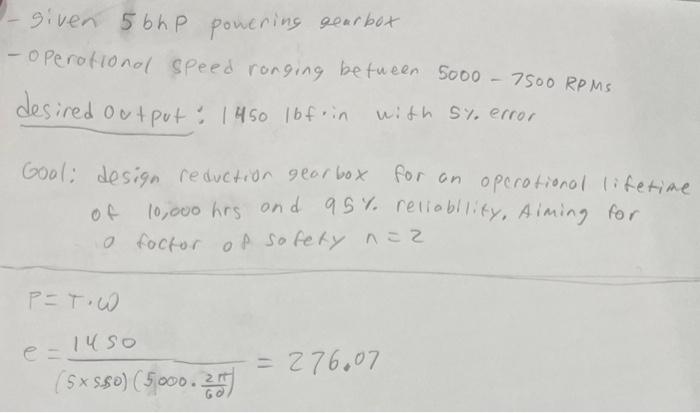 - given 5 bhp powering gearbox
- operational speed ranging between 5000 - 7500 RPMs
desired output: 1450 lbf·in with 5% error
Goal: design reduction gearbox for an operational lifetime
of 10,000 hrs and 95% reliability. Aiming for
a factor of safety n = 2
P = T·ω
e = 1450 / (5×550)(5000·2π/60) = 276.07